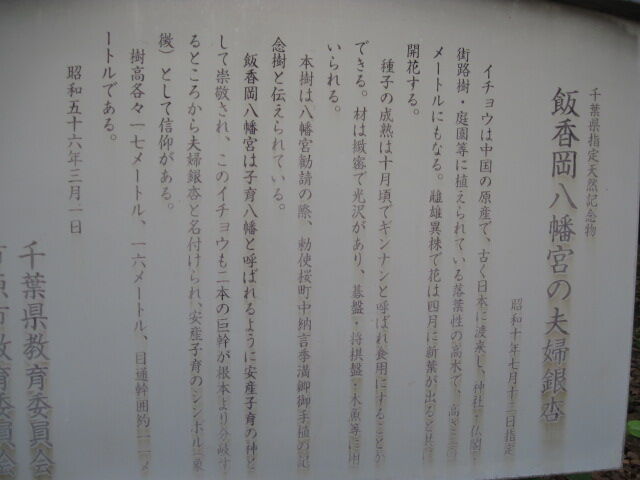 千葉県指定天然記念物
飯香岡八幡宮の夫婦銀杏
昭和十年七月十二日指定
イチョウは中国の原産で、古く日本に渡来し、神社・仏閣
街路樹・庭園等に植えられている落葉性の高木で、高さ三〇
メートルにもなる。雌雄異株で花は四月に新葉が出ると共
開花する。
種子の成熟は十月頃でギンナンと呼ばれ食用にすることが
できる。材は緻密で光沢があり、碁盤・将棋盤・木魚等に用
いられる。
本樹は八幡宮勧請の際、勅使桜町中納言季満卿御手植の記
念樹と伝えられている。
飯香岡八幡宮は子育八幡と呼ばれるように安産子育の神と
して崇敬され、このイチョウも二本の巨幹が根本より分岐す
るところから夫婦銀杏と名付けられ、安産子育のシンボル（象
徴）として信仰がある。
樹高各々一七メートル、一六メートル、目通幹囲約一一メ
ートルである。
昭和五十六年三月一日
千葉県教育委員会
市原市教育委員会